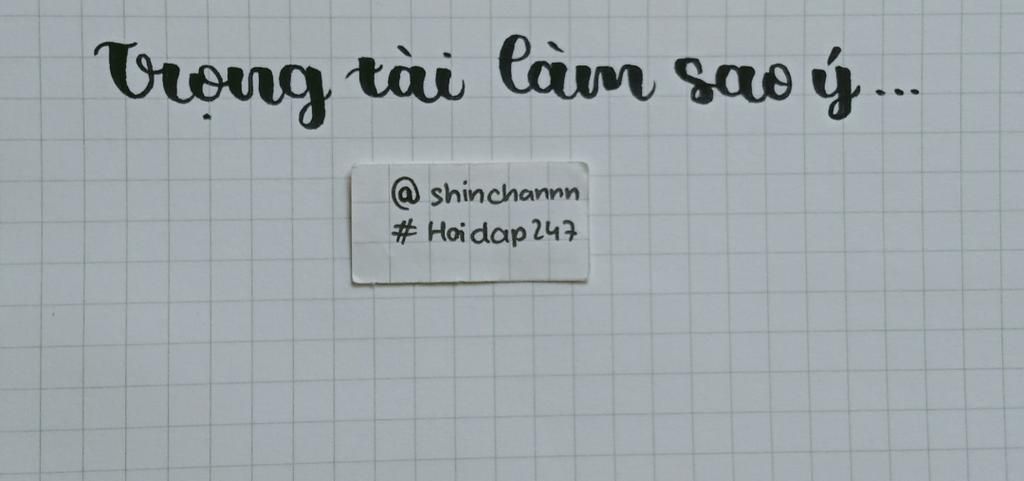 Trọng tài làm sao ý...
@ shinchannn
# Hoidap247